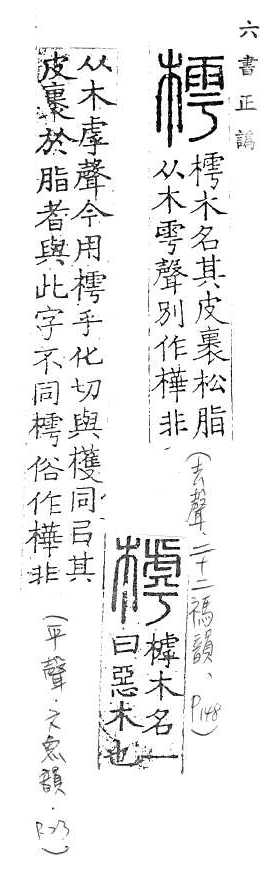 六書正譌
樗
樗木名其皮裹松脂
从木雩聲別作樺非
(去聲、二十二禡韻、P.148)
㯉木名一
曰惡木也
从木虖聲今用樗乎化切與檴同㠯其
皮裹於脂者與此字不同樗俗作樺非
(平聲.六魚韻.P.23)